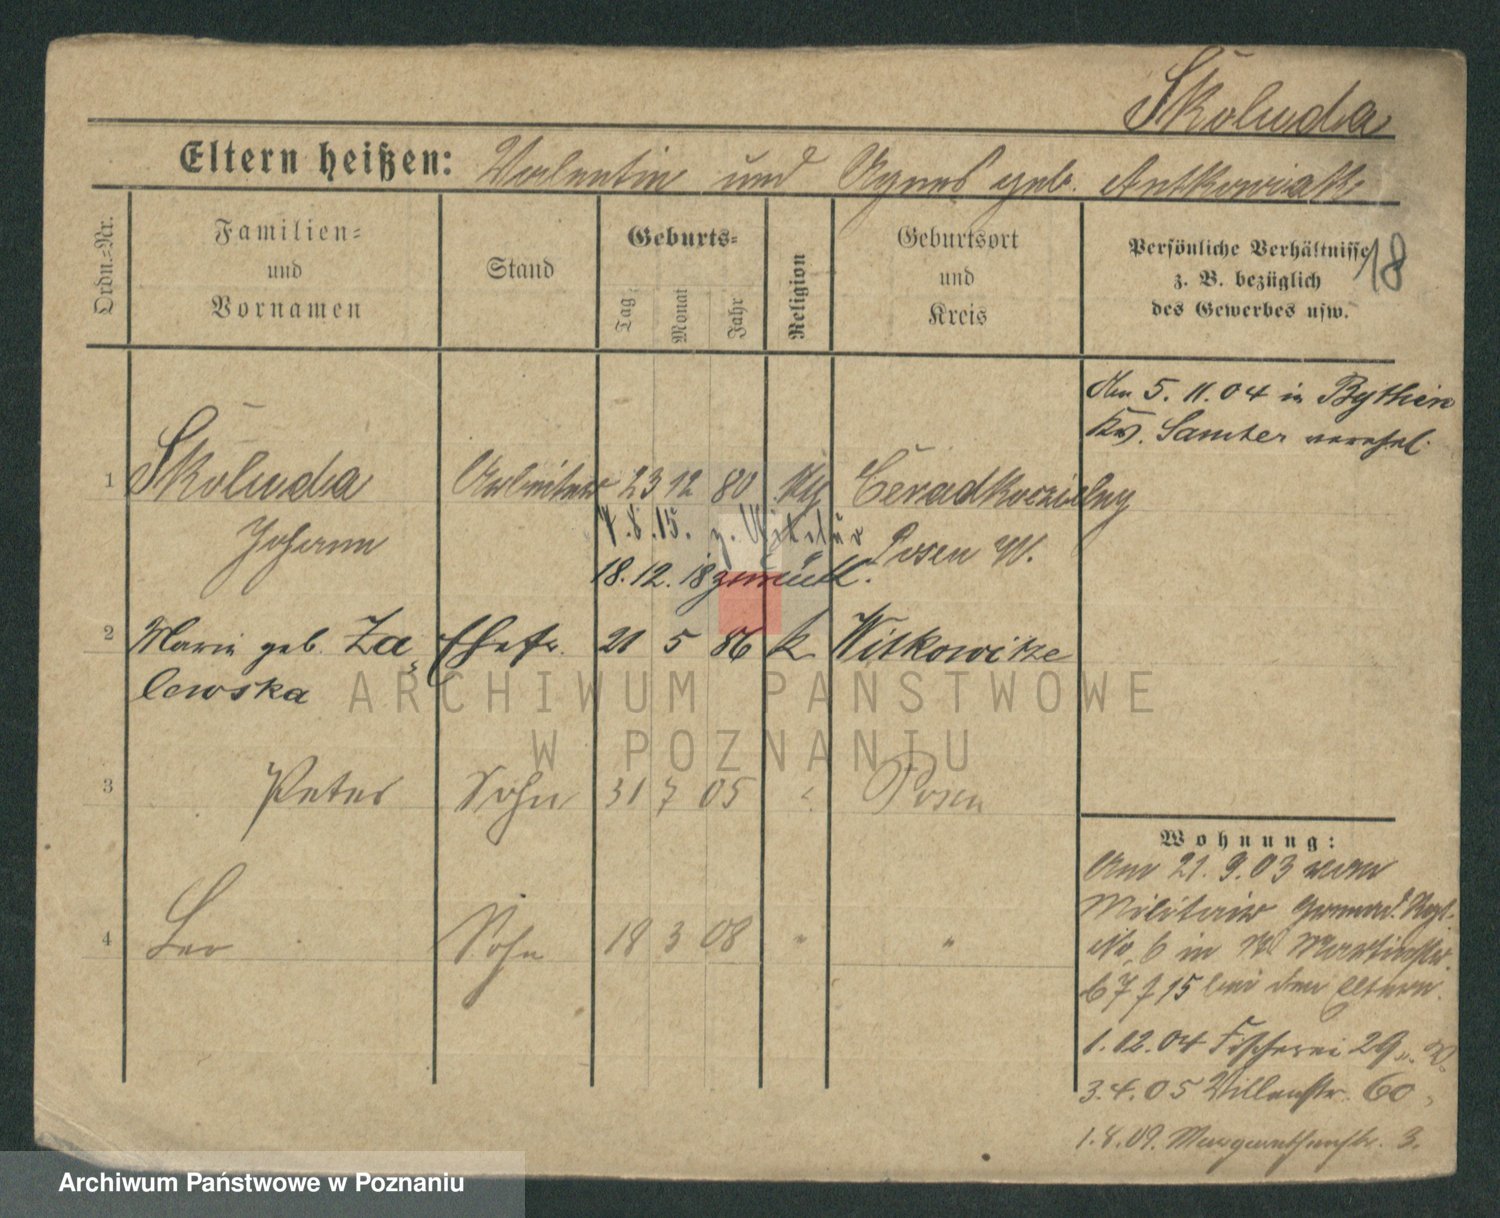 Skoluda
Eltern heißen: Valentin und Agnes geb. Antkowiak
Ordn.-Nr.
Familien-
und
Vornamen
Stand
Geburts-
Tag
Monat
Jahr
Religion
Geburtsort
und
Kreis
Persönliche Verhältnisse
z. B. bezüglich
des Gewerbes usw.
18
Am 5. 11. 04 in Bythin
Kr. Samter verehel.
1 Skoluda Arbeiter 23 12 80
Johann Posen W.
7.8.15. z.
18.12.18 zurück.
2 Marie geb. Za Ehefr. 21 5 86 k Witkowitze
lewska
3 Peter Sohn 31 7 05 " Posen
4 Leo Sohn 18 3 08 " "
Wohnung:
Am 21. 9. 03 vom
Militair Grenad. Regt.
No 6 in
bei den Eltern.
1. 12. 04 Fischerei 29
3. 4. 05 Villenstr. 60
1. 8. 09. Margarethenstr. 3.
ARCHIWUM PAŃSTWOWE
W POZNANIU
Archiwum Państwowe w Poznaniu